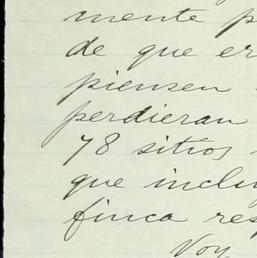 mente p
de que er
piensen
perdieran
78 sitios
que inclu
finca res
Voy